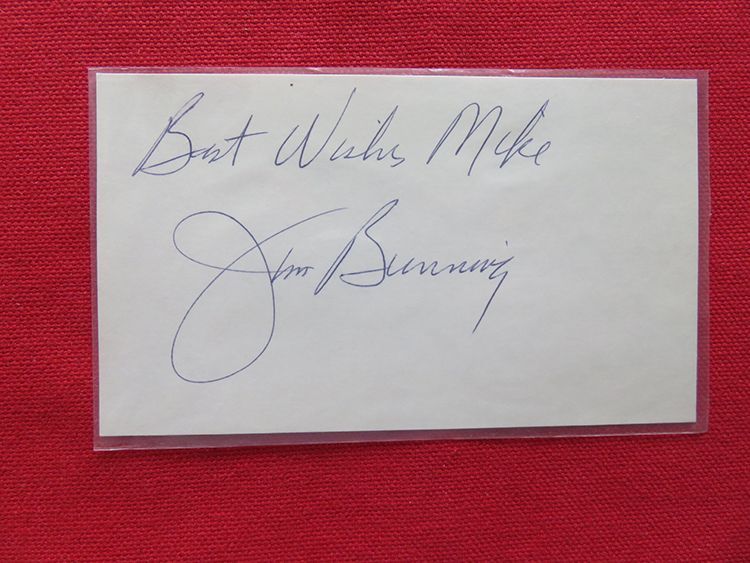 Best Wishes Mike
Jim Bunning